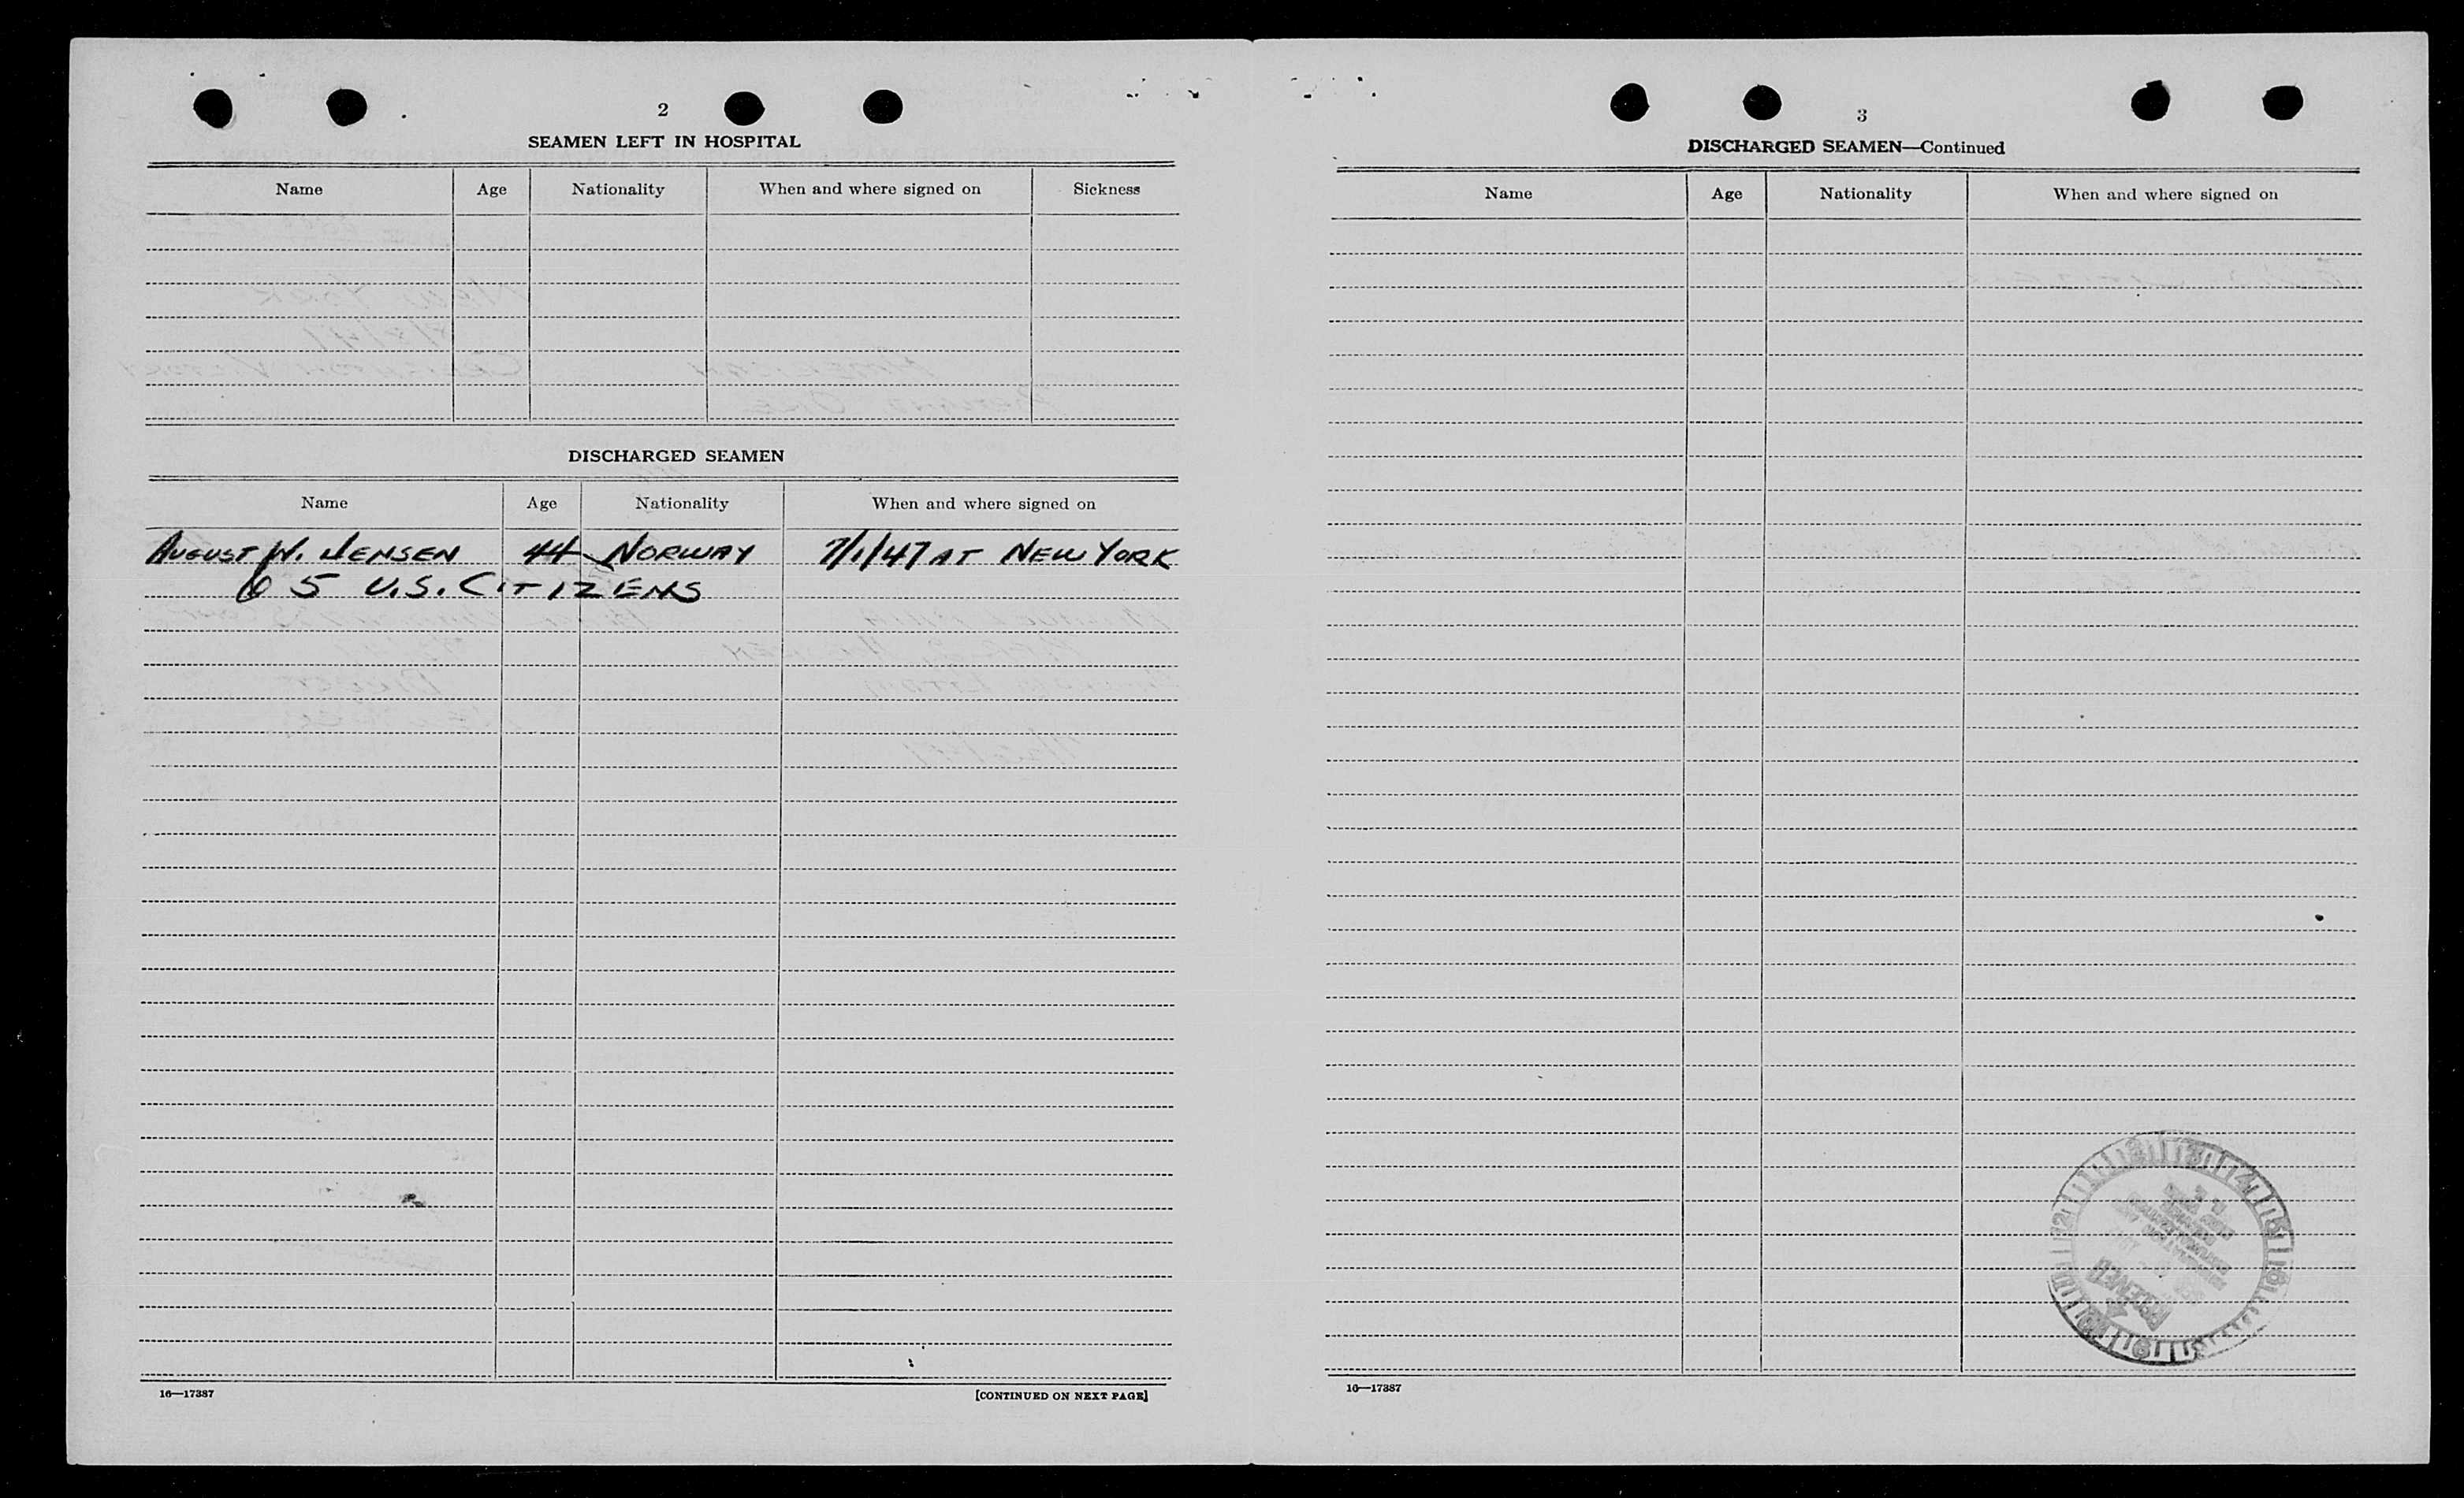 2
SEAMEN LEFT IN HOSPITAL
Name Age Nationality When and where signed on Sickness
DISCHARGED SEAMEN
Name Age Nationality When and where signed on
AUGUST W. JENSEN 44 NORWAY 7/1/47 AT NEW YORK
5 U.S. CITIZENS
16—17387 [CONTINUED ON NEXT PAGE]
3
DISCHARGED SEAMEN—Continued
Name Age Nationality When and where signed on
RECEIVED
16—17387